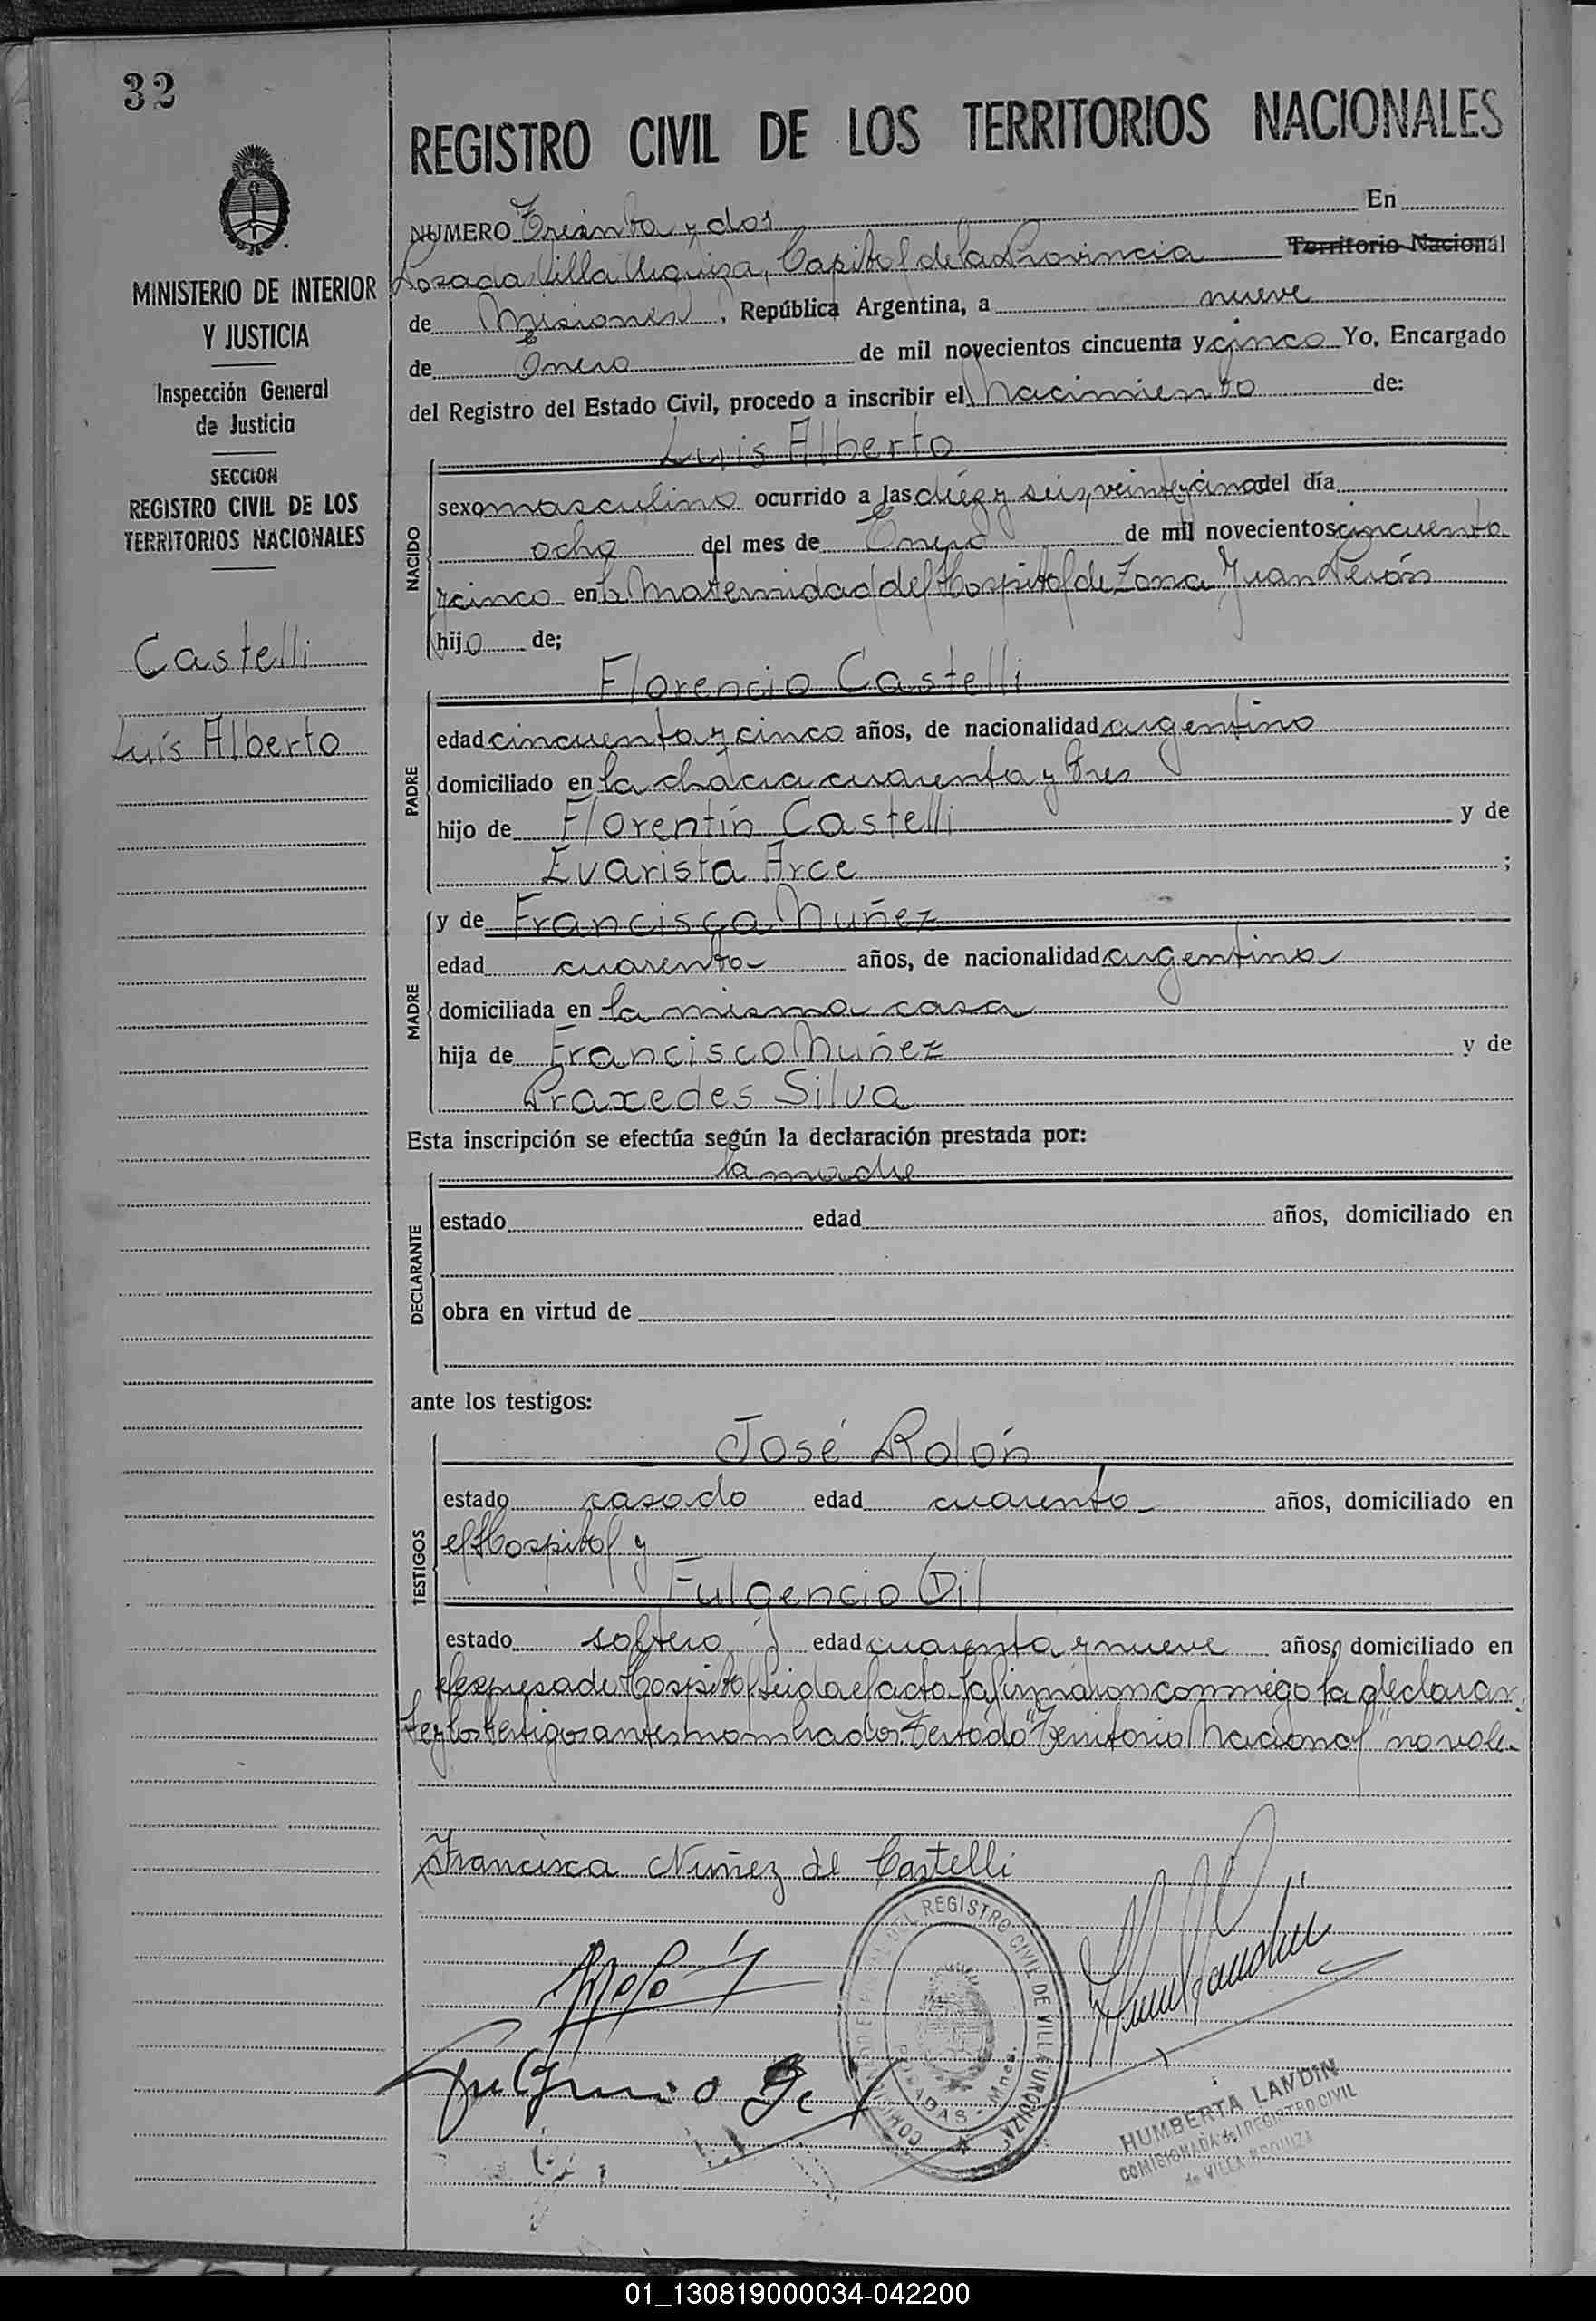 32
MINISTERIO DE INTERIOR
Y JUSTICIA
Inspección General
de Justicia
SECCION
REGISTRO CIVIL DE LOS
TERRITORIOS NACIONALES
Castelli
Luis Alberto
REGISTRO CIVIL DE LOS TERRITORIOS NACIONALES
NUMERO Treinta y dos En
Posadas Villa Urquiza, Capital de la Provincia Territorio Nacional
de Misiones, República Argentina, a nueve
de Enero de mil novecientos cincuenta y cinco Yo, Encargado
del Registro del Estado Civil, procedo a inscribir el Nacimiento de:
Luis Alberto
NACIDO
sexo masculino ocurrido a las diéz y seis, veinte y cinco del día
ocho del mes de Enero de mil novecientos cincuenta
y cinco en la Maternidad del Hospital de Zona Juan Perón
hijo de;
Florencio Castelli
PADRE
edad cincuenta y cinco años, de nacionalidad argentino
domiciliado en la chacra cuarenta y tres
hijo de Florentín Castelli y de
Evarista Arce ;
MADRE
y de Francisca Nuñez
edad cuarenta años, de nacionalidad argentina
domiciliada en la misma casa
hija de Francisco Nuñez y de
Praxedes Silva
Esta inscripción se efectúa según la declaración prestada por:
la madre
DECLARANTE
estado edad años, domiciliado en
obra en virtud de
ante los testigos:
José Rolón
TESTIGOS
estado casado edad cuarenta años, domiciliado en
el Hospital y
Fulgencio Dil
estado soltero edad cuarenta y nueve años, domiciliado en
el expresado Hospital Leída el acta la firmáron conmigo la declaran
te y los testigos antes nombrados. Testado "Territorio Nacional" no vale.
Francisca Nuñez de Castelli
REGISTRO CIVIL DE VILLA URQUIZA
POSADAS - Mnes.
HUMBERTA LANDIN
COMISIONADA del REGISTRO CIVIL
de VILLA URQUIZA
01_130819000034-042200